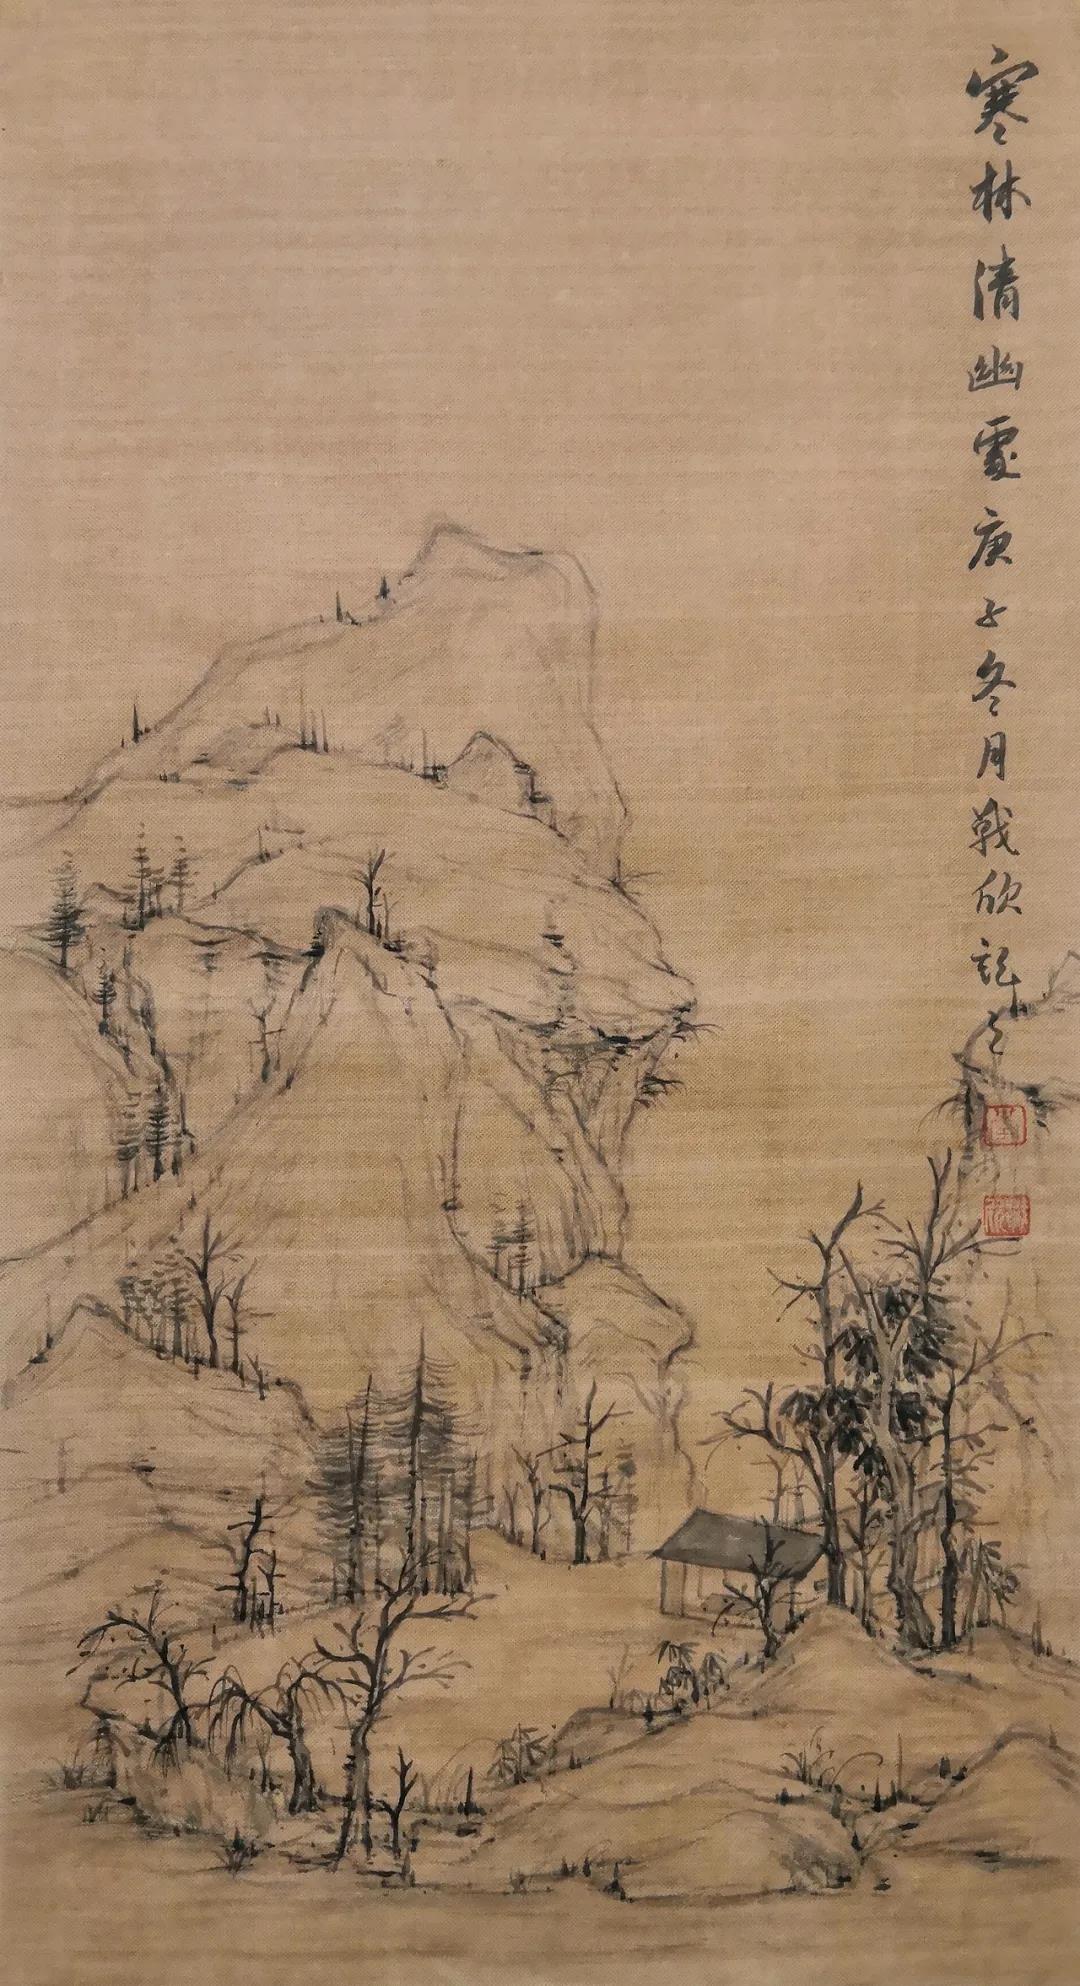 寒林清幽處庚子冬月戰欣記之